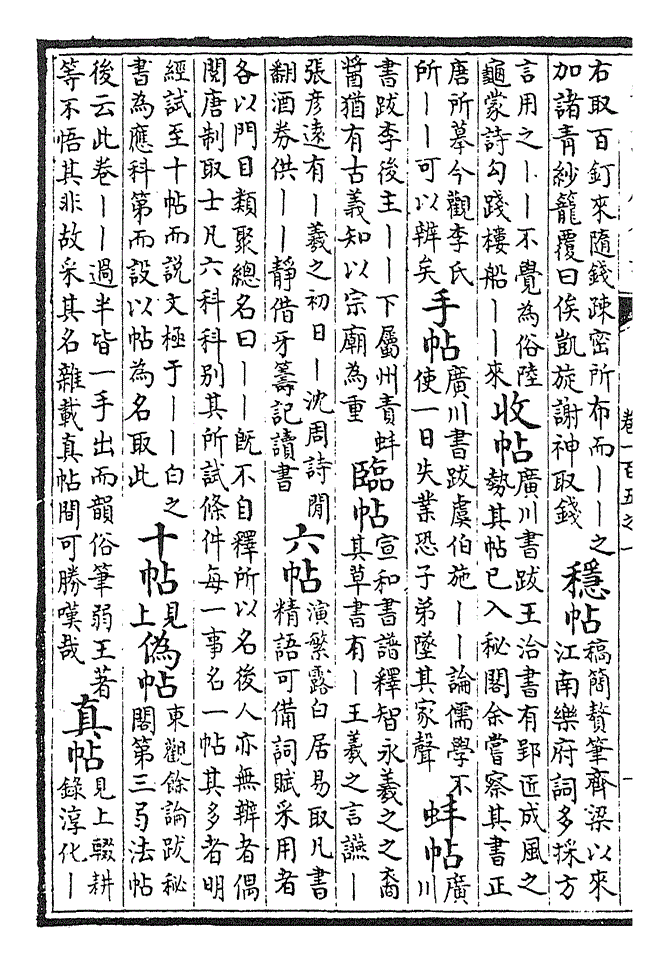 卷一百五之一
右取百釘來隨錢疎密所布而丨丨之
加諸青紗籠覆曰俟凱旋謝神取錢
穩帖
稿簡贅筆齊梁以來
江南樂府詞多採方
言用之丨丨不覺為俗陸
龜蒙詩勾踐樓船丨丨來
收帖
廣川書跋王洽書有郢匠成風之
勢其帖已入秘閣余嘗察其書正
唐所摹今觀李氏
所丨丨可以辨矣
手帖
廣川書跋虞伯施丨丨論儒學不
使一日失業恐子弟墜其家聲
蚌帖
廣
川
書跋李後主丨丨下屬州責蚌
醬猶有古義知以宗廟為重
臨帖
宣和書譜釋智永羲之之裔
其草書有丨王羲之言讌丨
張彥遠有丨羲之初日丨沈周詩閒
翻酒券供丨丨靜借牙籌記讀書
六帖
演繁露白居易取凡書
精語可備詞賦采用者
各以門目類聚總名曰丨丨旣不自釋所以名後人亦無辨者偶
閱唐制取士凡六科科別其所試條件每一事名一帖其多者明
經試至十帖而說文極于丨丨白之
書為應科第而設以帖為名取此
十帖
見
上
偽帖
東觀餘論跋秘
閣第三弓法帖
後云此卷丨丨過半皆一手出而韻俗筆弱王著
等不悟其非故采其名雜載真帖間可勝嘆哉
真帖
見上輟耕
錄淳化丨